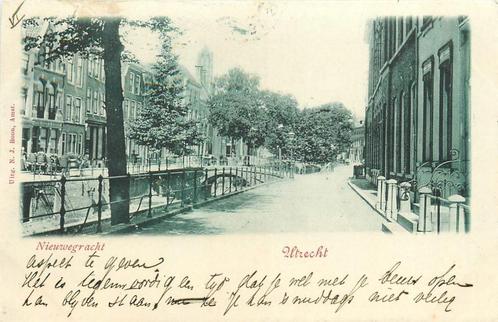 Uitg. N. J. Boon, Amst.
Nieuwegracht
Utrecht
aspect te geven
Het is tegenwoordig een tyd dat je wel met je beurs open
kan blyven staan, je kan 's middags niet veilig